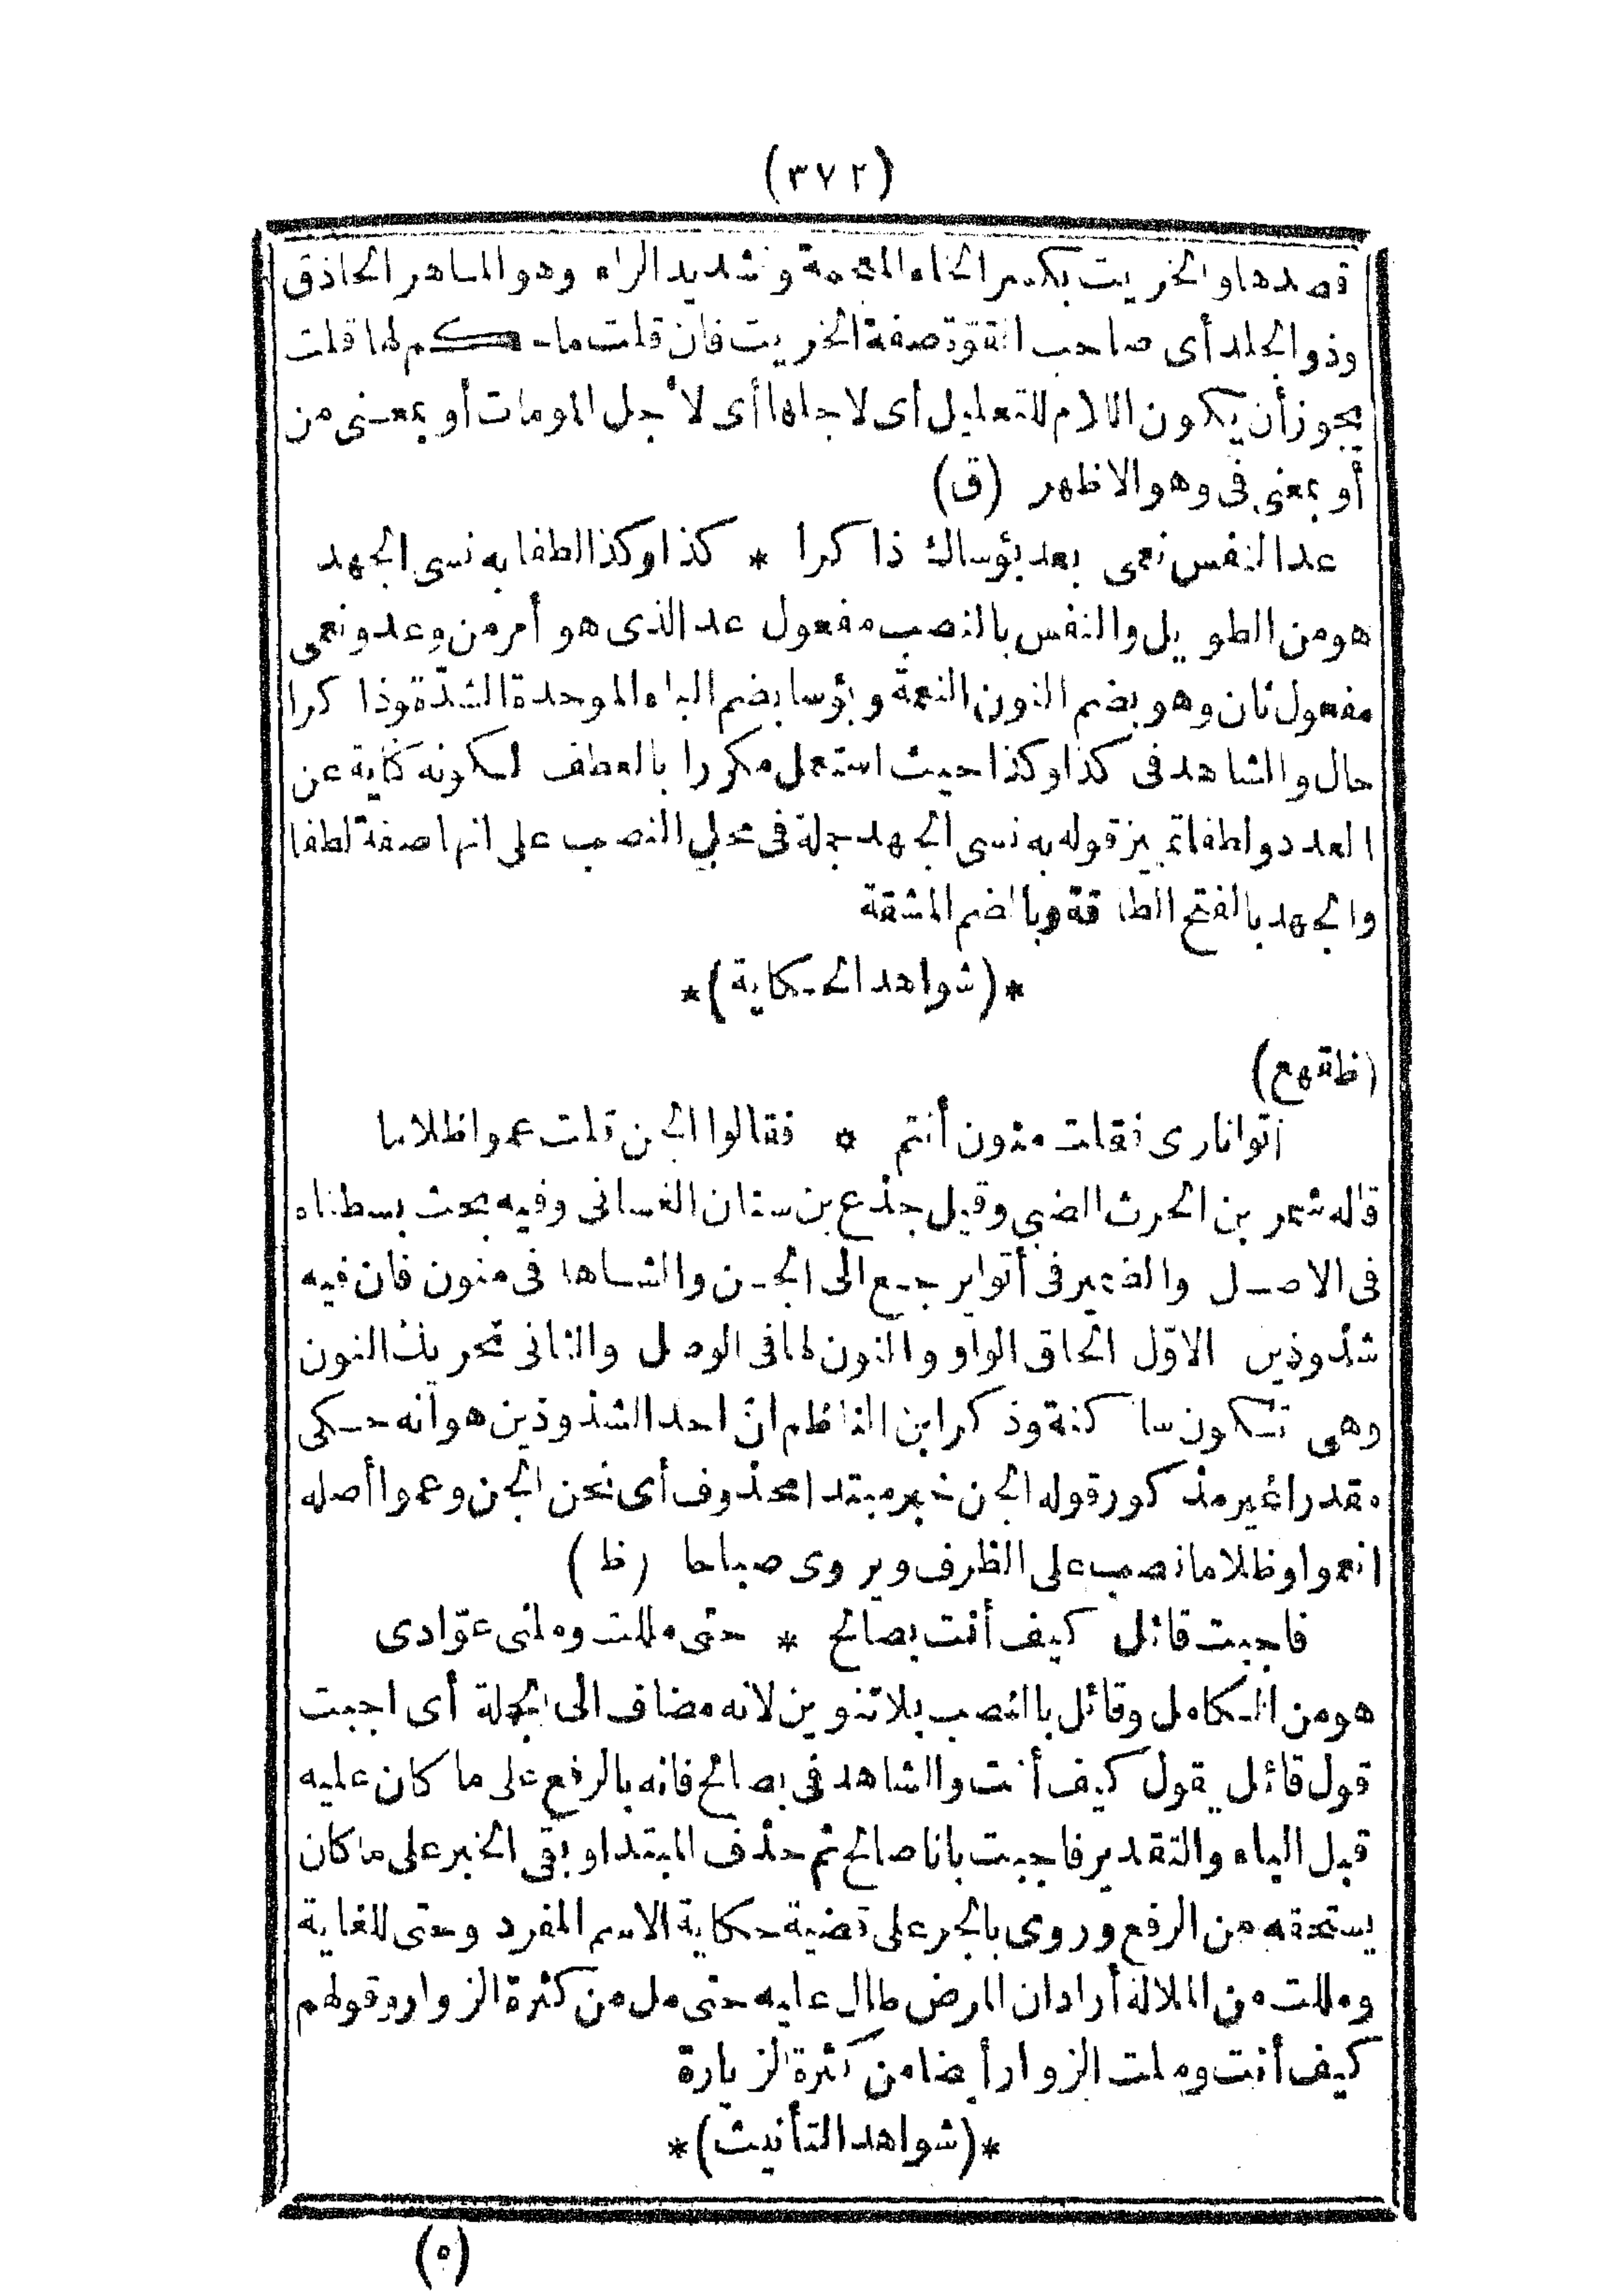 (٣٧٢)
قصدها والخريت بكسر الخاء المعجمة وتشديد الراء وهو الماهر الحاذق
وذو الجلد أى صاحب القوّة صفة الخريت فان قلت ما حكم لها قلت
يجوز أن يكون اللام للتعليل أى لاجلها أى لأجل المومات أو بمعنى من
أو بمعنى فى وهو الاظهر (ق)
عد النفس نعمى بعد بؤساك ذاكرا * كذا وكذا لطفا به نسى الجهد
هو من الطويل والنفس بالنصب مفعول عد الذى هو أمر من وعد ونعمى
مفعول ثان وهو بضم النون النعمة وبؤسا بضم الباء الموحدة الشدّة وذاكرا
حال والشاهد فى كذا وكذا حيث استعمل مكررا بالعطف لكونه كناية عن
العدد ولطفا تمييز قوله به نسى الجهد جملة فى محل النصب على انها صفة لطفا
والجهد بالفتح الطاقة وبالضم المشقة
*(شواهد الحكاية)*
(ظقهع)
أتوا نارى فقلت منون أنتم * فقالوا الجن قلت عموا ظلاما
قاله شمر بن الحرث الضبى وقيل جذع بن سنان الغسانى وفيه بحث بسطناه
فى الاصل والضمير فى أتوا يرجع الى الجن والشاها فى منون فان فيه
شذوذين الاوّل الحاق الواو والنون لها فى الوصل والثانى تحريك النون
وهى تكون ساكنة وذكر ابن الناظم انّ احد الشذوذين هو أنه حكى
مقدرا غير مذكور قوله الجن خبر مبتدا محذوف أى نحن الجن وعموا أصله
انعموا وظلاما نصب على الظرف ويروى صباحا (ظ)
فاجبت قائل كيف أنت بصالح * حتى مللت وملنى عوّادى
هو من الكامل وقائل بالنصب بلا تنوين لانه مضاف الى الجملة أى اجبت
قول قائل يقول كيف أنت والشاهد فى بصالح فانه بالرفع على ما كان عليه
قبل الباء والتقدير فاجبت بانا صالح ثم حذف المبتدا وبقى الخبر على ما كان
يستحقه من الرفع وروى بالجر على قضية حكاية الاسم المفرد وحتى للغاية
ومللت من الملالة أراد ان المرض طال عليه حتى مل من كثرة الزوار وقولهم
كيف أنت وملت الزوار أيضا من كثرة الزيارة
*(شواهد التأنيث)*
(٥)